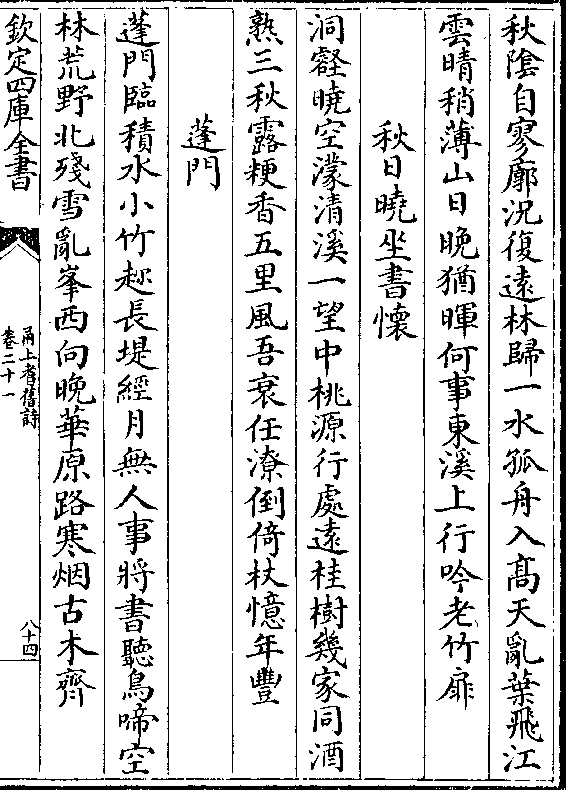 秋陰自寥廓況復遠林歸一水孤舟入髙天亂葉飛江
雲晴稍薄山日晚猶暉何事東溪上行吟老竹扉
秋日曉坐書懷
洞壑曉空濛清溪一望中桃源行處逺桂樹幾家同酒
熟三秋露粳香五里風吾衰任潦倒倚杖憶年豐
蓬門
蓬門臨積水小竹趂長堤經月無人事將書聽鳥啼空
林荒野北殘雪亂峯西向晚華原路寒烟古木齊
欽定四庫全書
甬上耆舊詩
卷二十一
八十四